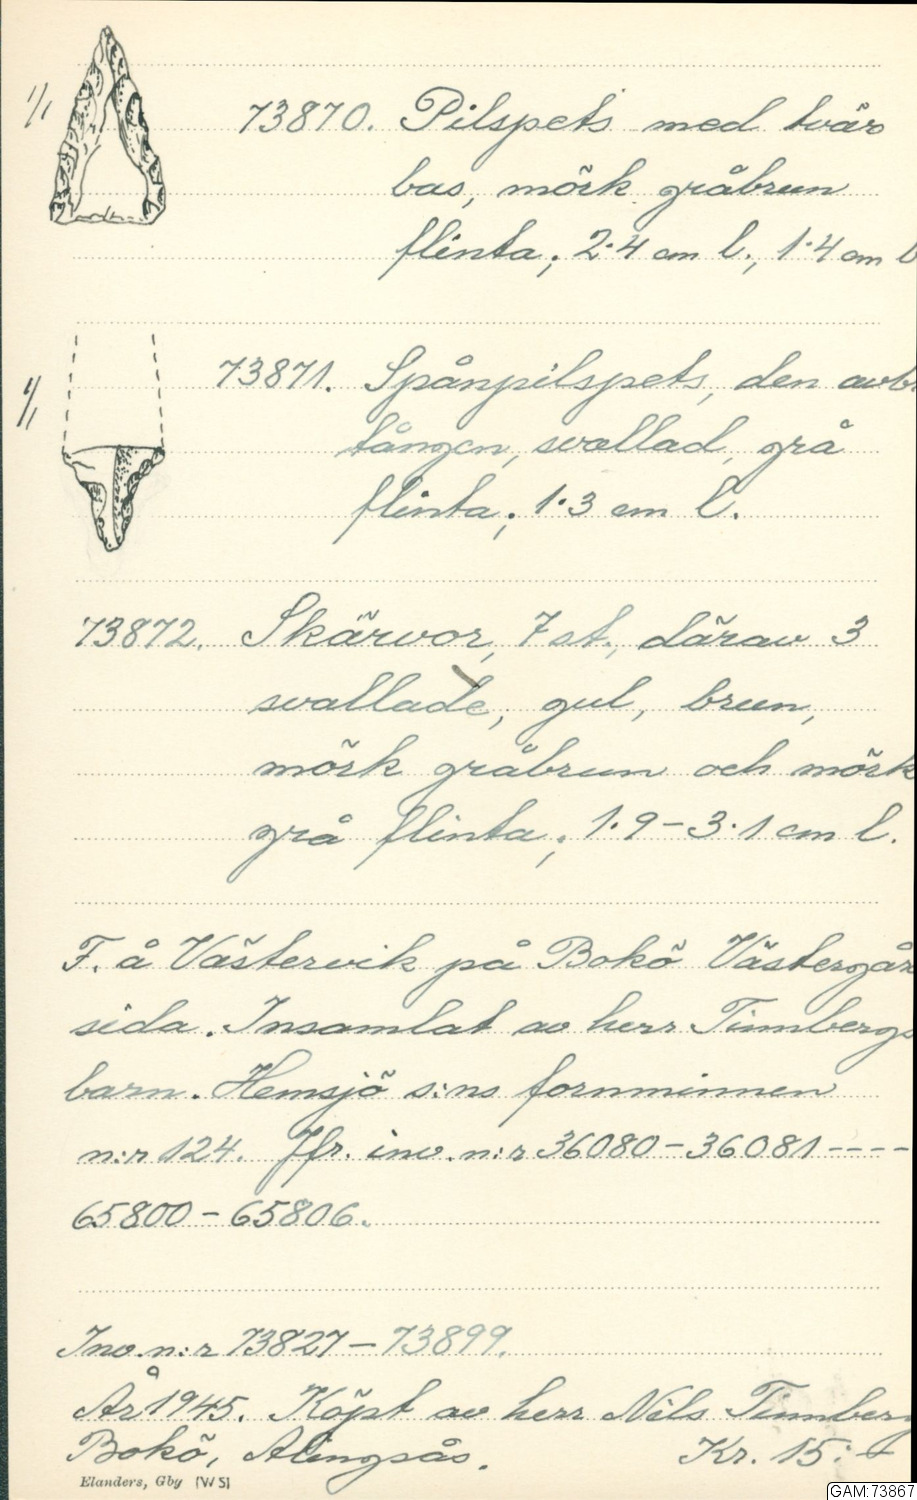 1/1
73870. Pilspets med tvär
bas, mörk gråbrun
flinta; 2·4 cm l., 1·4 cm b
1/1
73871. Spånpilspets, den avb.
tången, svallad, grå
flinta; 1·3 cm l.
73872. Skärvor, 7 st., därav 3
svallade; gul, brun,
mörk gråbrun och mörk
grå flinta; 1·9–3·1 cm l.
F. å Västervik på Bokö Västergår
sida. Insamlat av herr Timbergs
barn. Hemsjö s:ns fornminnen
n:r 124. Jfr. inv. n:r 36080–36081----
65800–65806.
Inv. n:r 73827–73899.
År 1945. Köpt av herr Nils Timberg
Bokö, Alingsås. Kr. 15:-
Elanders, Gby [W S]
GAM:73867